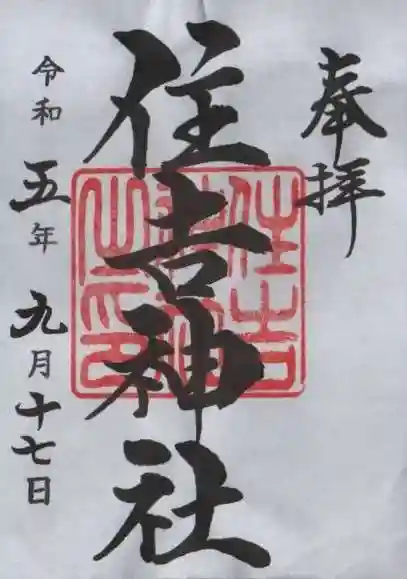 奉拝
住吉神社
住吉神社之印
令和五年九月十七日